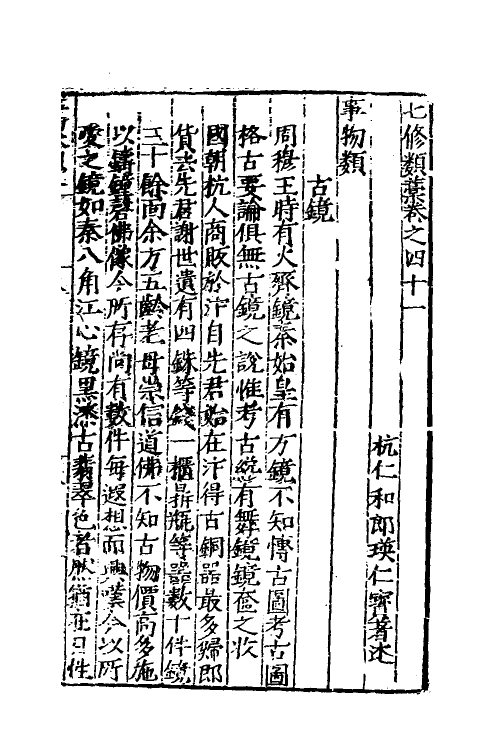 七修類藁卷之四十一
杭仁和郎瑛仁寶著述
事物類
古鏡
周穆王時有火齊鏡秦始皇有方鏡不知慱古圖考古圖
格古要論俱無古鏡之說惟考古緫有舞鏡鏡奩之收
國朝杭人商販於汴自先君始在汴得古銅器最多歸即
貨去先君謝世遺有四銖等錢一櫃鼎瓶等器數十件鏡
三十餘面余方五齡老母崇信道佛不知古物價高多施
以鑄鐘磬佛像今所存尚有數件每遐想而興嘆今以所
愛之鏡如秦八角江心鏡黑漆古翡翠色若猶在日性